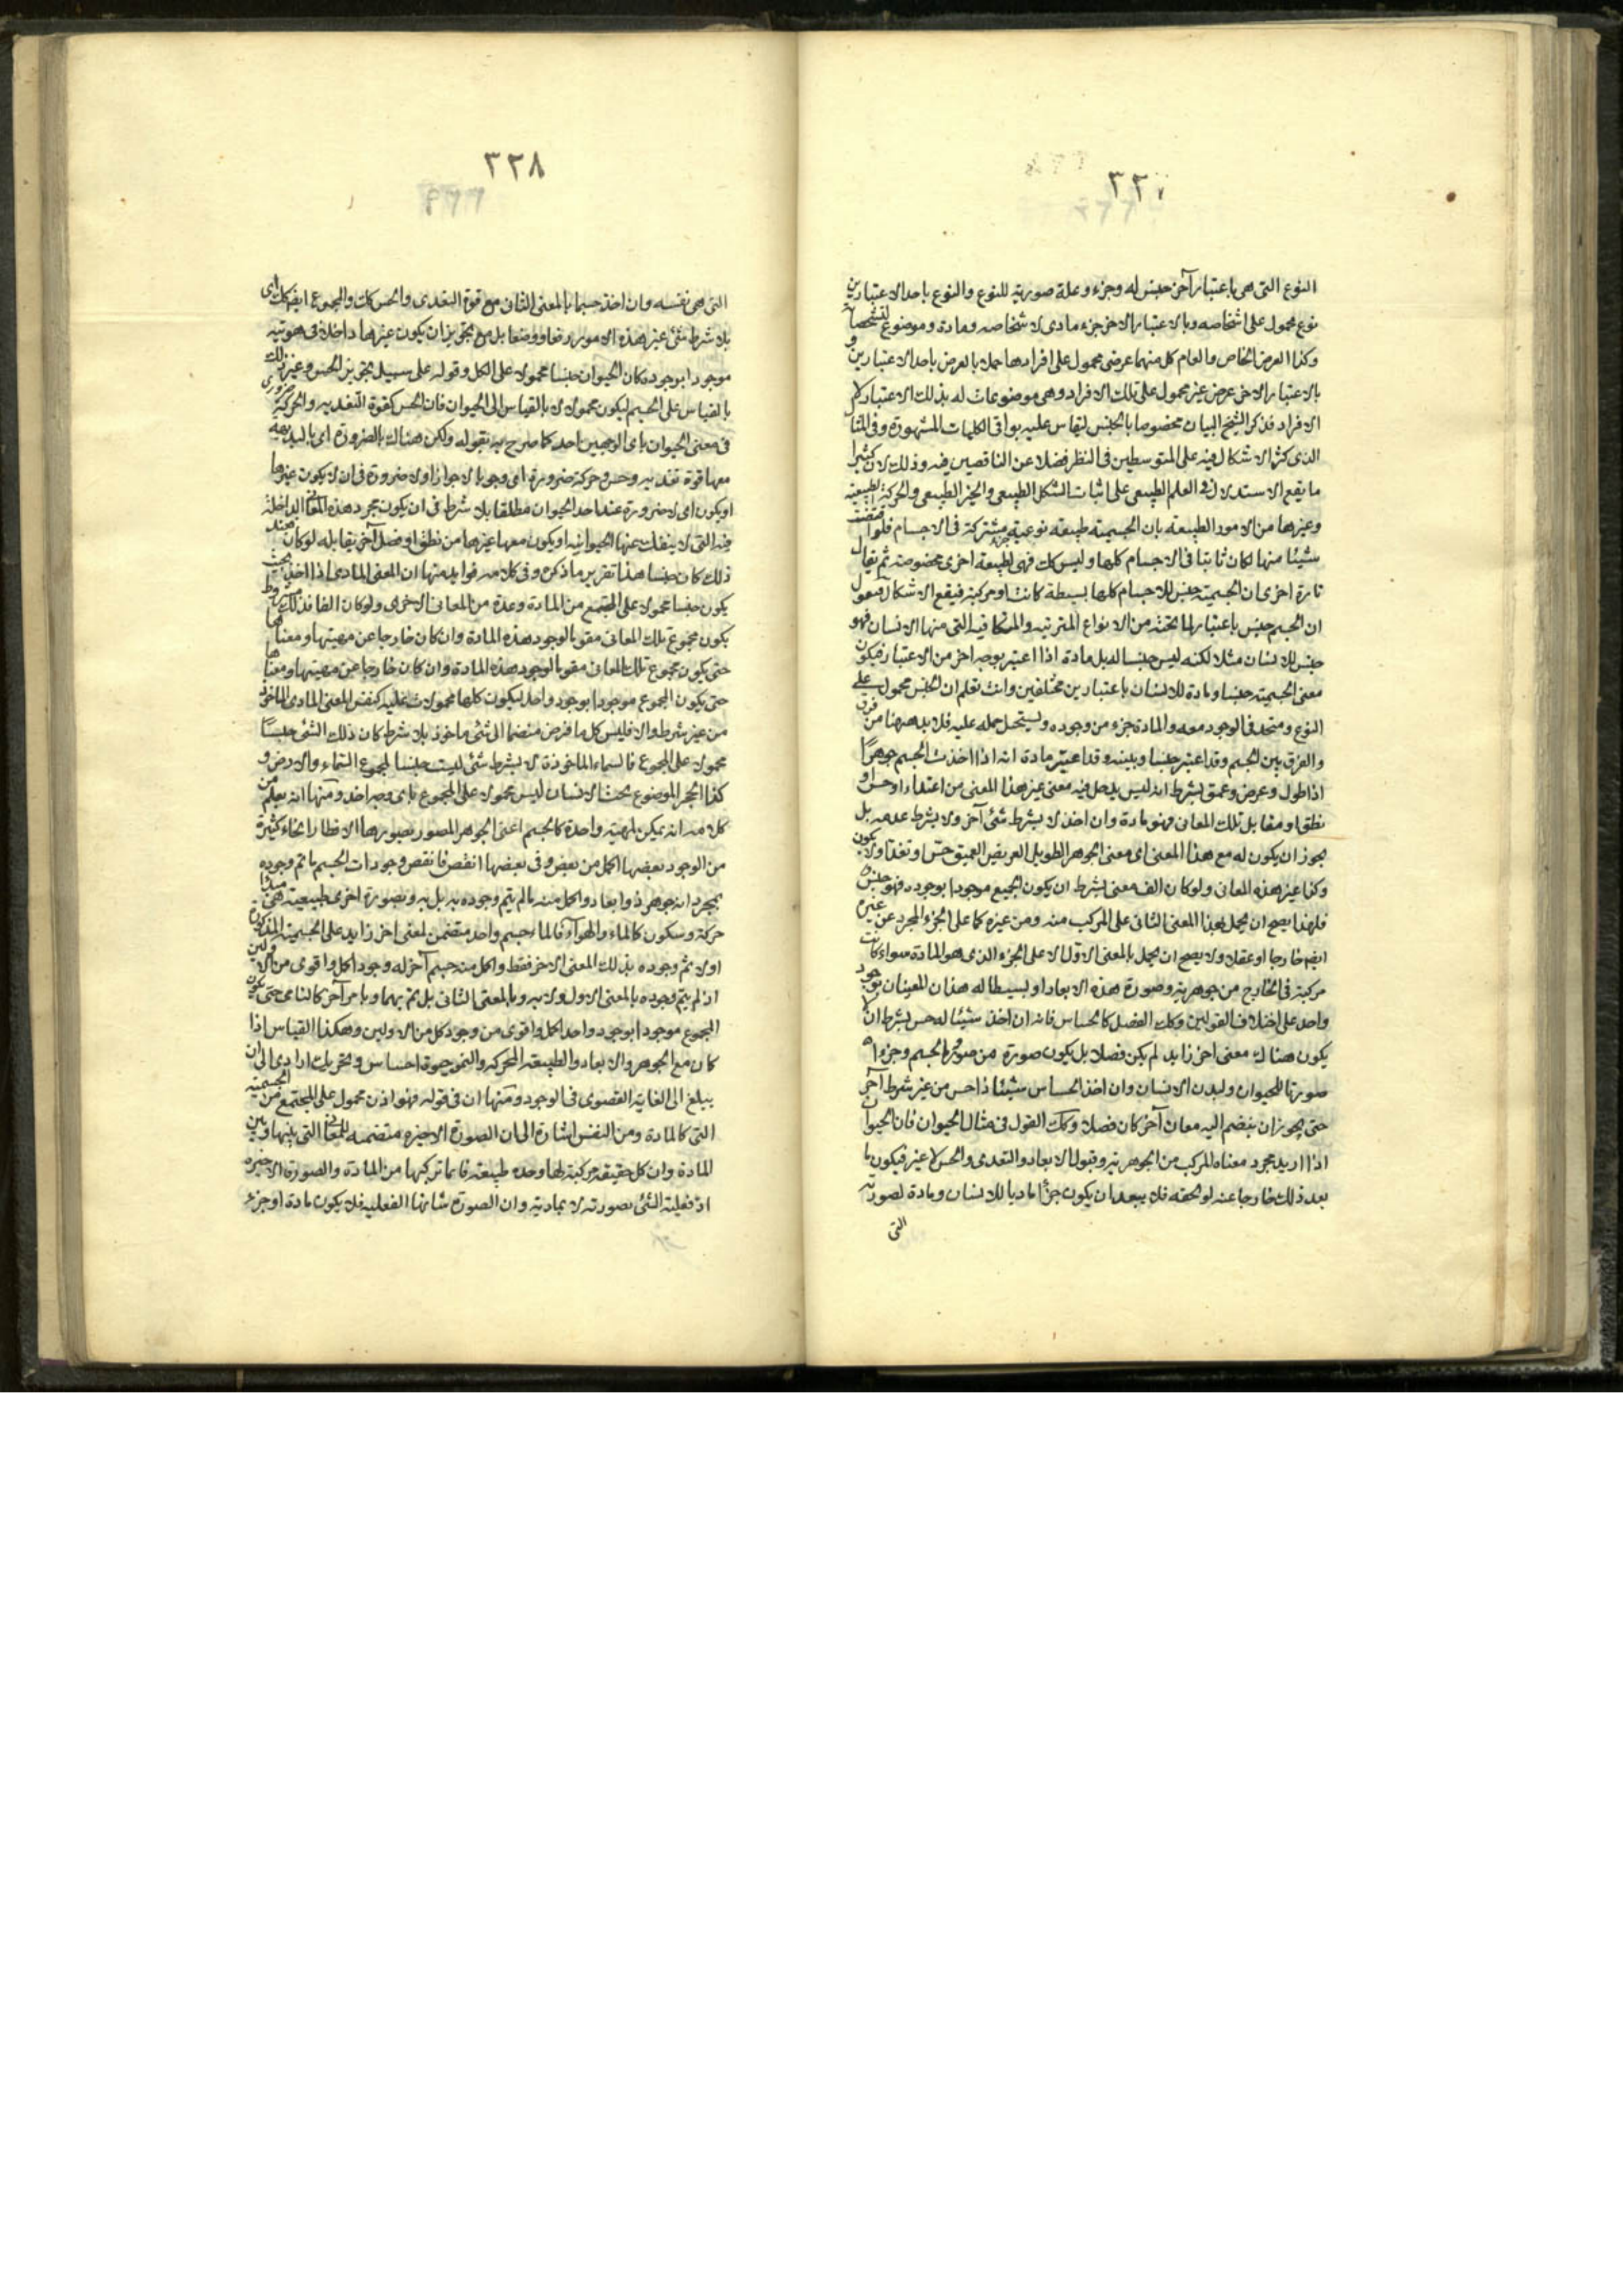 ٣٣٧
النوع التى هى باعتبار آخر جنس له وجزء وعلة صورية للنوع والنوع باحد الاعتبارين
نوع محمول على اشخاصه وبالاعتبار الاخر جزء مادى لاشخاصه ومادة وموضوع لتشخصاته
وكذا العرض الخاص والعام كل منهما عرضى محمول على افرادها حملا بالعرض باحد الاعتبارين و
بالاعتبار الاخر عرض غير محمول على تلك الافراد وهى موضوعات له بذلك الاعتبار كم
الافراد فذكر الشيخ البيان مخصوصا بالجنس ليقاس عليه بواقى الكليات المشهورة وفى المثال
الذى كثر الاشكال فيه على المتوسطين فى النظر فضلا عن الناقصين فيه وذلك لان كثيرا
ما يقع الاستدلال فى العلم الطبيعى على اثبات الشكل الطبيعى والحيز الطبيعى والحركة الطبيعية
وغيرها من الامور الطبيعة بان الجسمية طبيعة نوعية مشتركة فى الاجسام فلو اقتضت
شيئا منها لكان ثابتا فى الاجسام كلها وليس كك فهى لطبيعة اخرى مخصوصة ثم يقال
تارة اخرى ان الجسمية جنس للاجسام كلها بسيطة كانت او مركبة فيقع الاشكال فيقول
ان الجسم جنس باعتبار لما تحته من الانواع المترتبة والمتكافية التى منها الانسان فهو
جنس للانسان مثلا لكنه ليس جنسا له بل مادة اذا اعتبر بوجه اخر من الاعتبار فيكون
معنى الجسمية جنسا ومادة للانسان باعتبارين مختلفين وانت تعلم ان الجنس محمول على
النوع ومتحد فى الوجود معه والمادة جزء من وجوده ويستحيل حمله عليه فلابد ههنا من فرق
والفرق بين الجسم وقد اعتبر جنسا وبينه وقد اعتبر مادة انه اذا اخذت الجسم جوهرا
اذا طول وعرض وعمق بشرط انه ليس يدخل فيه معنى غير هذا المعنى من اغتذاء او حس او
نطق او مقابل تلك المعانى فهو مادة وان اخذ لا بشرط شئ آخر ولا بشرط عدمه بل
يجوز ان يكون له مع هذا المعنى اى معنى الجوهر الطويل العريض العميق حس وتغذ او لا يكون
وكذا غير هذه المعانى ولو كان الف معنى بشرط ان يكون الجميع موجودا بوجوده فهو جنس
فلهذا يصح ان يحمل بهذا المعنى الثانى على المركب منه ومن غيره كما على الجزء المجرد عن غيره
ايض خارجا او عقلا ولا يصح ان يحمل بالمعنى الاول الا على الجزء الذى هو المادة سواء كانت
مركبة فى الخارج من جوهرية وصورة هذه الابعاد او بسيطا له هذان المعينان بوجود
واحد على اختلاف القولين وكك الفصل كالحساس فانه ان اخذ شيئا له حس بشرط ان لا
يكون هناك معنى اخر زايد لم يكن فصلا بل يكون صورة من صور الجسم وجزءا
صورتا للحيوان ولبدن الانسان وان اخذ الحساس شيئا ذا حس من غير شرط آخر
حتى يجوز ان ينضم اليه معان آخر كان فصلا وكك القول فى مثال الحيوان فان الحيوان
اذا اريد مجرد معناه المركب من الجوهرية وقبول الابعاد والتغذى والحس لا غير فيكون ما
بعد ذلك خارجا عنه لو الحقه فلا يبعد ان يكون جزءا ماديا للانسان ومادة لصورته
التى
٣٣٨
التى هى نفسه وان اخذ جسما بالمعنى الثانى مع قوة التغذى والحس كك والمجموع ايض كك اى
بلا شرط شئ غير هذه الامور رفعا ووضعا بل مع تجويز ان يكون غيرها داخلا فى هويته
موجودا بوجوده كان الحيوان جنسا محمولا على الكل وقوله على سبيل تجويز الحس وغير ذلك
بالقياس على الجسم ليكون محمولا لا بالقياس الى الحيوان فان الحس كقوة التغذية والحركة ضرورى
فى معنى الحيوان باى الوجهين اخذ كما صرح به بقوله ولكن هناك بالضرورة اى بالبديهة
معها قوة تغذية وحس وحركة ضرورة اى وجوبا لا جوازا ولا ضرورة فى ان لا يكون غيرها
او يكون اى لا ضرورة عند اخذ الحيوان مطلقا بلا شرط فى ان يكون مجرد هذه المعانى الداخلة
فيه التى لا ينفك عنها الحيوانية او يكون معها غيرها من نطق او فصل آخر يقابله لو كان عند
ذلك كان جنسا هذا تقرير ما ذكره وفى كلامه فوايد منها ان المعنى المادى اذا اخذ بحيث
يكون جنسا محمولا على المجتمع من المادة وعدة من المعانى الاخرى ولو كان الفا فذلك مشروط
يكون مجموع تلك المعانى مقو بالوجود هذه المادة وان كان خارجا عن مهيتها ومعناها
حتى يكون مجموع تلك المعانى مقو بالوجود هذه المادة وان كان خارجا عن مهيتها ومعناها
حتى يكون المجموع موجودا بوجود واحد ليكون كلها محمولات عليه كنفس المعنى المادى الماخوذ
من غير شرط والا فليس كل ما فرض منضما الى شئ ماخوذ بلا شرط كان ذلك الشئ جنسا
محمولا على المجموع فالسماء الماخوذة لا بشرط شئ ليست جنسا لمجموع السماء والارض و
كذا الحجر الموضوع بجنب الانسان ليس محمولا على المجموع باى وجه اخذ ومنها انه يعلم من
كلامه انه يمكن لمهية واحدة كالجسم اعنى الجوهر المصور بصورها الاقطار انحاء كثيرة
من الوجود بعضها اكمل من بعض وفى بعضها انقص فانقص وجودات الجسم ما تم وجوده
بمجرد انه جوهر ذو ابعاد واكمل منه ما لم يتم وجوده به بل به وبصورة اخرى طبيعية هى مبدا
حركة وسكون كالماء والهواء فالماء جسم واحد متضمن لمعنى اخر زايد على الجسمية المذكورة
اولا تم وجوده بذلك المعنى الاخر فقط واكمل منه جسم آخر له وجود اكمل واقوى من الاولين
اذ لم يتم وجوده بالمعنى الاول ولا به وبالمعنى الثانى بل تم بهما وبامر آخر كالنامى حتى يكون
المجموع موجودا بوجود واحد اكمل واقوى من وجود كل من الاولين وهكذا القياس اذا
كان مع الجوهر والابعاد والطبيعة المحركة والنمو قوة احساس وتحريك ارادى الى ان
يبلغ الى الغاية القصوى فى الوجود ومنها ان فى قوله فهو اذن محمول على المجتمع من الجسمية
التى كالمادة ومن النفس اشارة الى ان الصورة الاخيرة متضمنة للمعانى التى بينها وبين
المادة وان كل حقيقة مركبة لها وحدة طبيعية فانما تركبها من المادة والصورة الاخيرة
اذ فعلية الشئ بصورته لا بمادية وان الصورة شانها الفعلية فلا يكون مادة او جزء